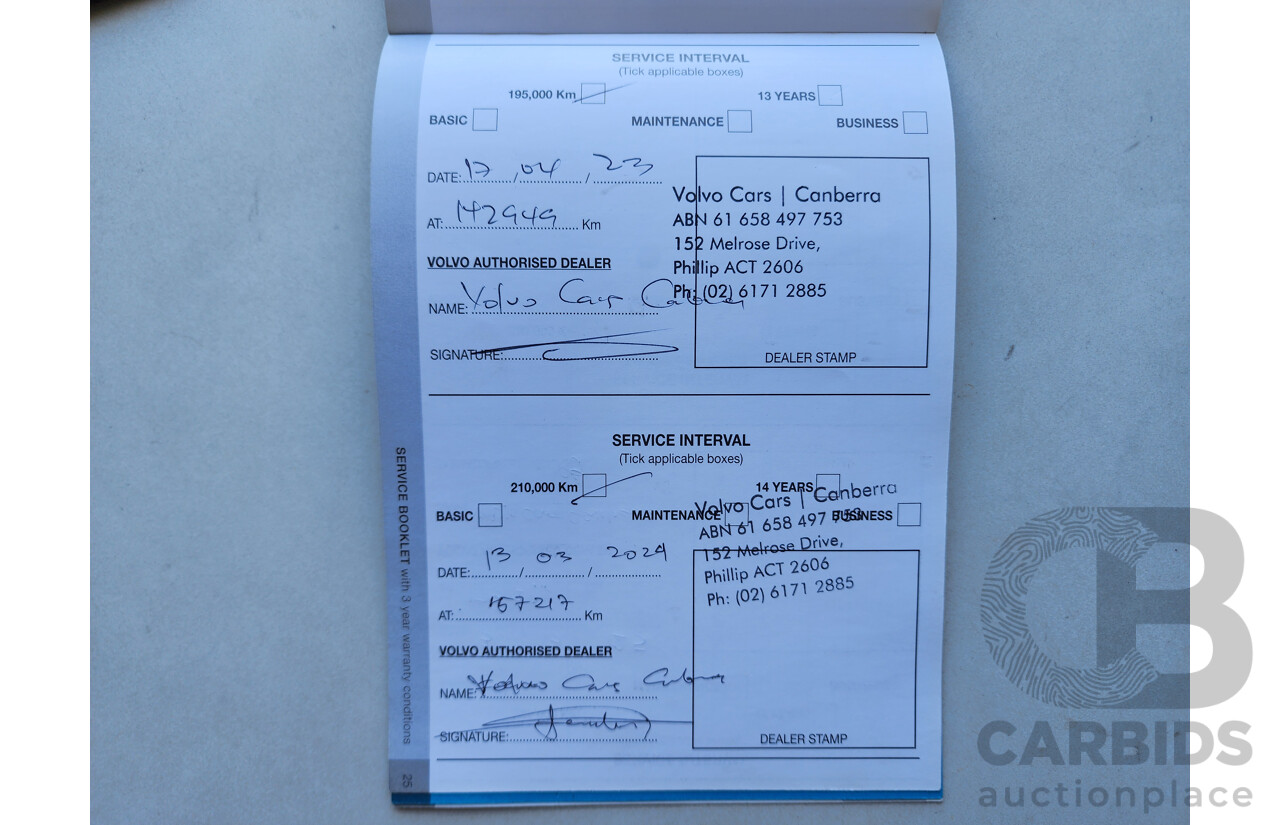 SERVICE INTERVAL
(Tick applicable boxes)
195,000 Km 13 YEARS
BASIC MAINTENANCE BUSINESS
DATE: 17, 04, 23
AT: 142949 Km
VOLVO AUTHORISED DEALER
NAME: Volvo Cars
SIGNATURE:
Volvo Cars | Canberra
ABN 61 658 497 753
152 Melrose Drive,
Phillip ACT 2606
Ph: (02) 6171 2885
DEALER STAMP
SERVICE INTERVAL
(Tick applicable boxes)
210,000 Km 14 YEARS
BASIC MAINTENANCE BUSINESS
DATE: 13 / 03 / 2024
AT: 157217 Km
VOLVO AUTHORISED DEALER
NAME: Cars
SIGNATURE:
Volvo Cars | Canberra
ABN 61 658 497 753
152 Melrose Drive,
Phillip ACT 2606
Ph: (02) 6171 2885
DEALER STAMP
SERVICE BOOKLET with 3 year warranty conditions
25
CB
CARBIDS
auctionplace